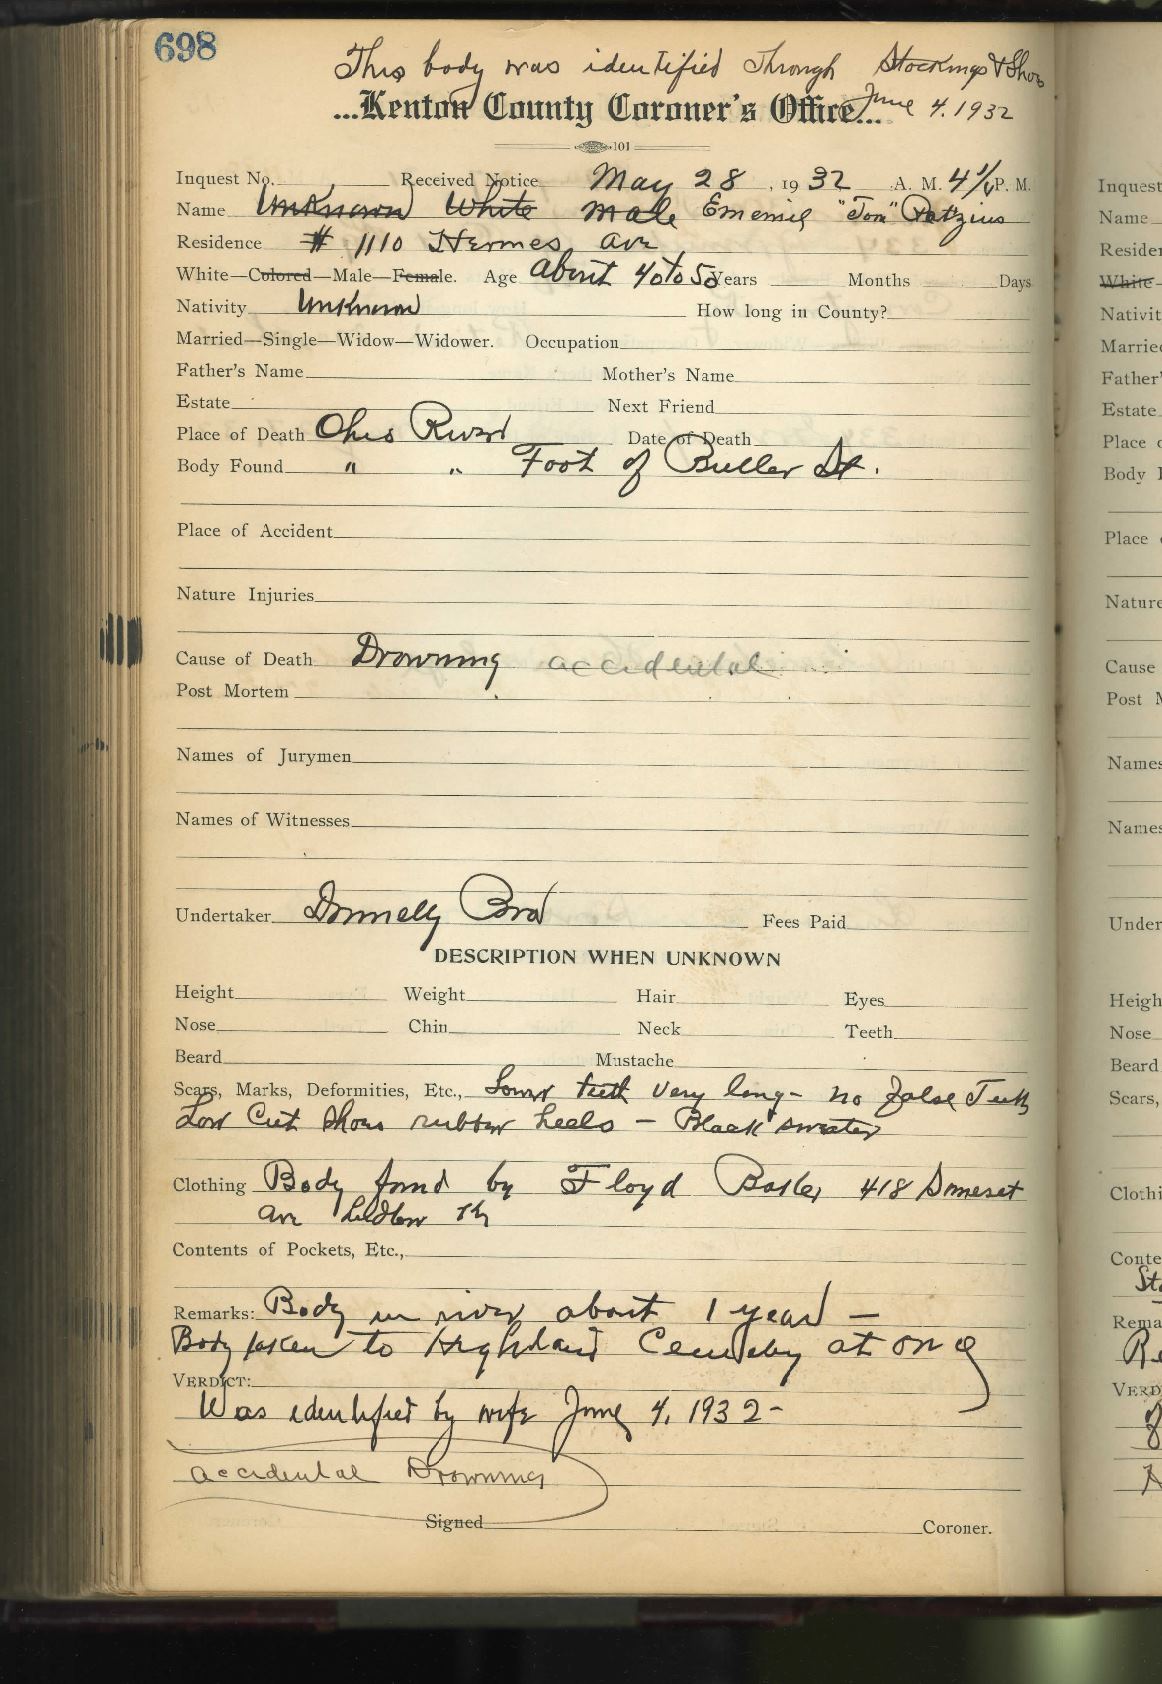 698
This body was identified Through Stockings & Shoes
...Kenton County Coroner's Office...
June 4. 1932
101
Inquest No. Received Notice May 28, 1932 A. M. 4 1/4 P. M.
Name Unknown White Male "Tom" Patzius
Residence # 1110 Hermes Ave
White—Colored—Male—Female. Age about 40 to 50 Years Months Days
Nativity Unknown How long in County?
Married—Single—Widow—Widower. Occupation
Father's Name Mother's Name
Estate Next Friend
Place of Death Ohio River Date of Death
Body Found " " Foot of Butler St.
Place of Accident
Nature Injuries
Cause of Death Drowning accidental
Post Mortem
Names of Jurymen
Names of Witnesses
Undertaker Donnelly Bros Fees Paid
DESCRIPTION WHEN UNKNOWN
Height Weight Hair Eyes
Nose Chin Neck Teeth
Beard Mustache
Scars, Marks, Deformities, Etc., Lower teeth very long - no false Teeth
Low Cut Shoes rubber heels - Black sweater
Clothing Body found by Floyd 418 Somerset
ave Ludlow Ky
Contents of Pockets, Etc.,
Remarks: Body in river about 1 year -
Body taken to Highland Cemetery at once
VERDICT:
Was identified by wife June 4, 1932 -
accidental Drowning
Signed Coroner.
Inquest
Name
Residen
White-
Nativit
Married
Father'
Estate
Place o
Body F
Place o
Nature
Cause
Post M
Names
Names
Under
Heigh
Nose
Beard
Scars,
Clothi
Conte
St
Rema
Re
VERD